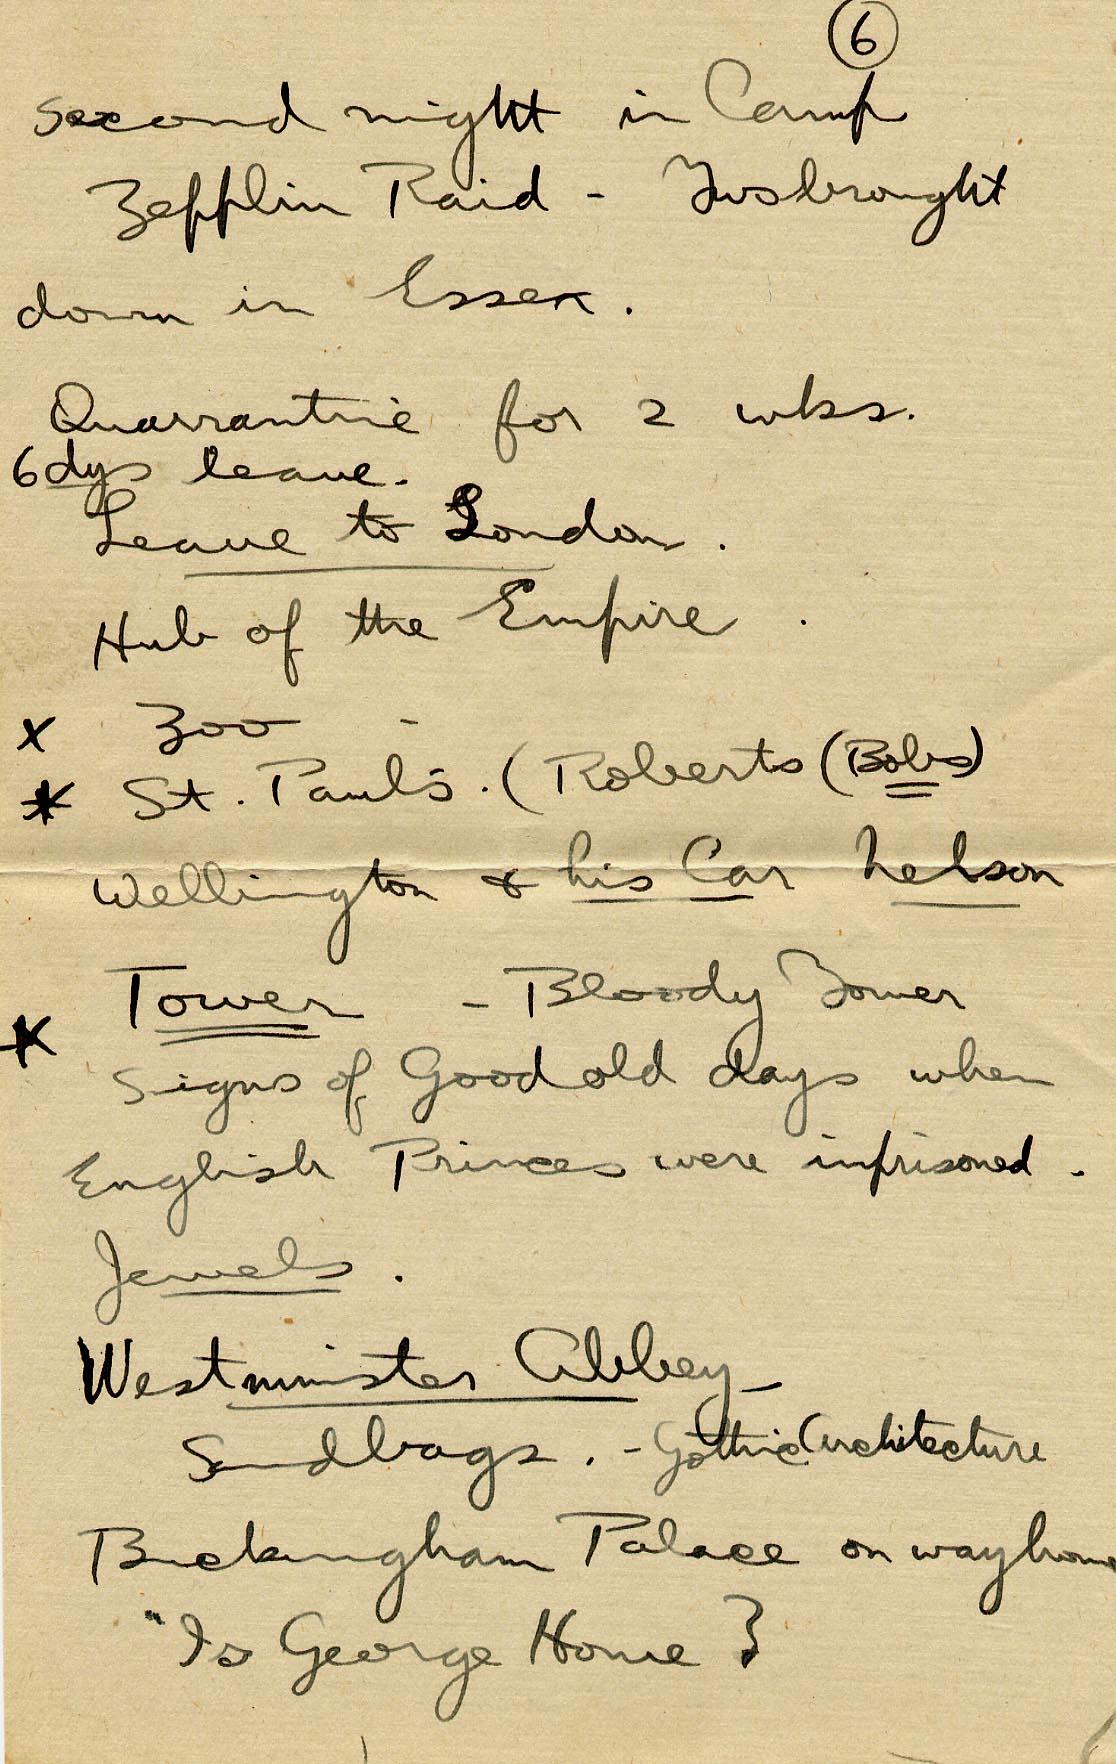 6
Second night in Camp
Zepplin Raid - Two brought
down in Essex.
Quarrantine for 2 wks.
6 dys leave.
Leave to London.
Hub of the Empire.
x Zoo -
* St. Paul's. (Roberts (Bobs)
Wellington & his Car Nelson
Tower - Bloody Tower
* Signs of Good old days when
English Princes were imprisoned.
Jewels.
Westminster Abbey -
Sandbags. - Gothic Architecture
Buckingham Palace on way home
"Is George Home ?